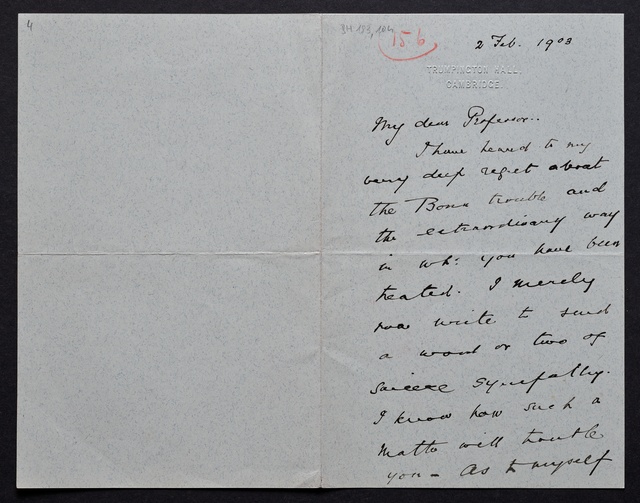 4
BH 153, 104
15-6
2 Feb. 1903
TRUMPINGTON HALL,
CAMBRIDGE.
My dear Professor..
I have heard to my
very deep regret about
the Bonn trouble and
the extraordinary way
in wh: you have been
treated. I merely
now write to send
a word or two of
sincere sympathy.
I know how such a
matter will trouble
you - As to myself